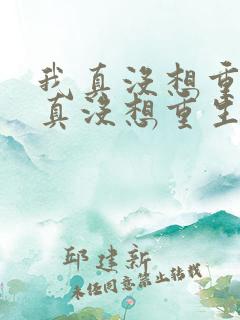 我真没想重
真没想重生
邱建新
未经同意禁止转载